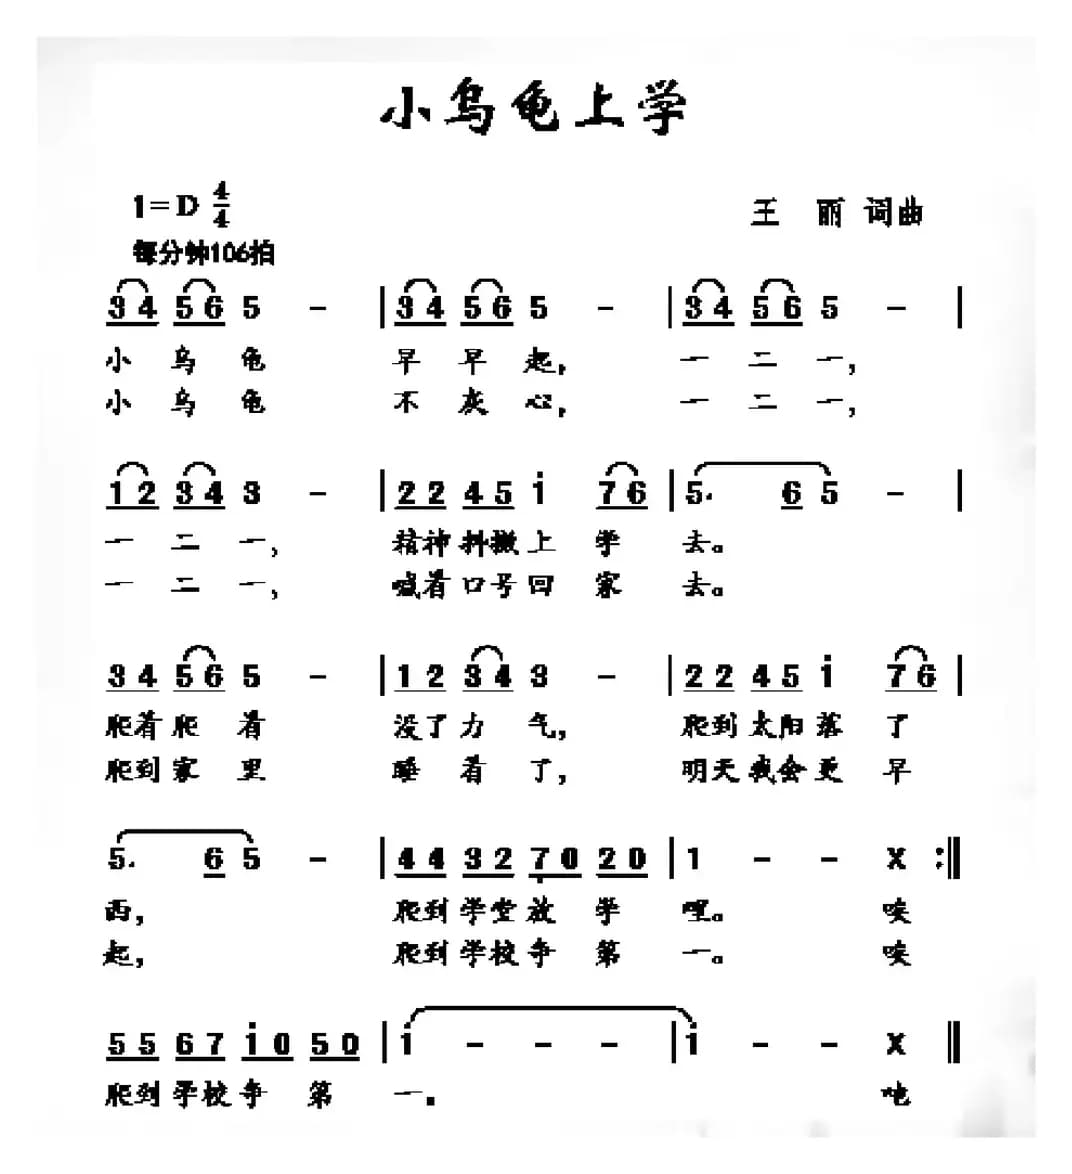 小乌龟上学
1=D 4/4
王 丽 词曲
每分钟106拍
3 4 5 6 5 - | 3 4 5 6 5 - | 3 4 5 6 5 - |
小 乌 龟 早 早 起, 一 二 一,
小 乌 龟 不 灰 心, 一 二 一,
1 2 3 4 3 - | 2 2 4 5 i 7 6 | 5. 6 5 - |
一 二 一, 精神 抖擞 上 学 去。
一 二 一, 喊着 口号 回 家 去。
3 4 5 6 5 - | 1 2 3 4 3 - | 2 2 4 5 i 7 6 |
爬着 爬 着 没了 力 气, 爬到 太阳 落 了
爬到 家 里 睡 着 了, 明天 我会 更 早
5. 6 5 - | 4 4 3 2 7̣ 0 2 0 | 1 - - X :||
西, 爬到 学堂 放 学 哩。 唉
起, 爬到 学校 争 第 一。 唉
5 5 6 7 i 0 5 0 | i - - - | i - - X ||
爬到 学校 争 第 一。